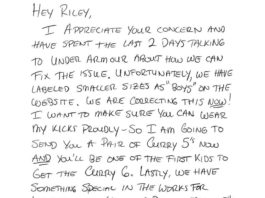 HEY RILEY,
I APPRECIATE YOUR CONCERN AND
HAVE SPENT THE LAST 2 DAYS TALKING
TO UNDER ARMOUR ABOUT HOW WE CAN
FIX THE ISSUE. UNFORTUNATELY, WE HAVE
LABELED SMALLER SIZES AS "BOYS" ON THE
WEBSITE. WE ARE CORRECTING THIS NOW!
I WANT TO MAKE SURE YOU CAN WEAR
MY KICKS PROUDLY - SO I AM GOING TO
SEND YOU A PAIR OF CURRY 5'S NOW
AND YOU'LL BE ONE OF THE FIRST KIDS TO
GET THE CURRY 6. LASTLY, WE HAVE
SOMETHING SPECIAL IN THE WORKS FOR